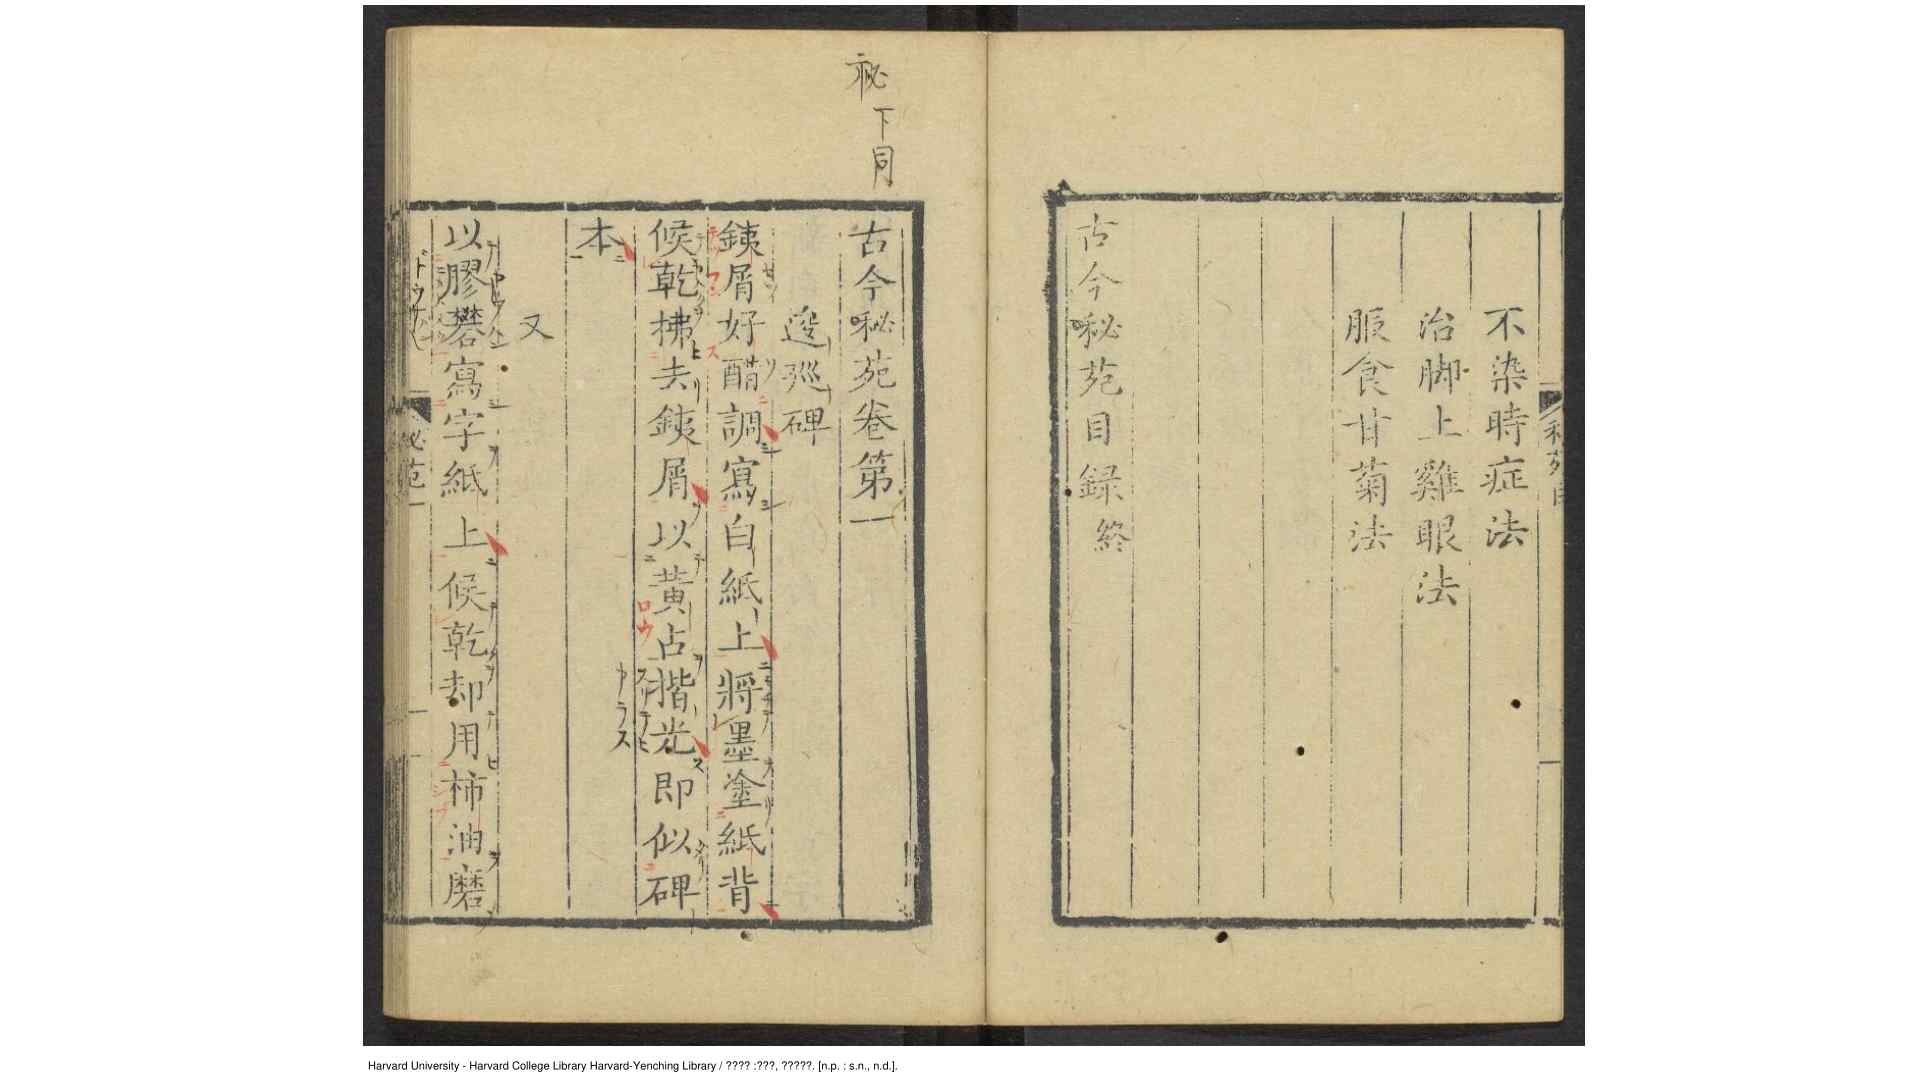 不染時症法
治脚上雞眼法
服食甘菊法
古今秘苑目録終
祕下同
古今秘苑卷第一
逡巡碑
銕屑好醋調寫白紙上將墨塗紙背
候乾拂去銕屑以黃占揩光即似碑
本
又
以膠礬寫字紙上候乾却用柿油磨
秘苑一
Harvard University - Harvard College Library Harvard-Yenching Library / ???? :???, ?????. [n.p. : s.n., n.d.].